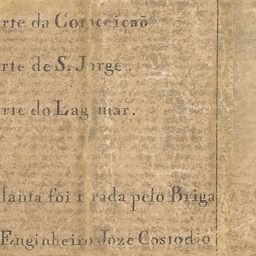 rte da Conceiçaõ
rte de S. Jorge.
rte do Lagamar.
lanta foi tirada pelo Briga
Enginheiro Joze Costodio